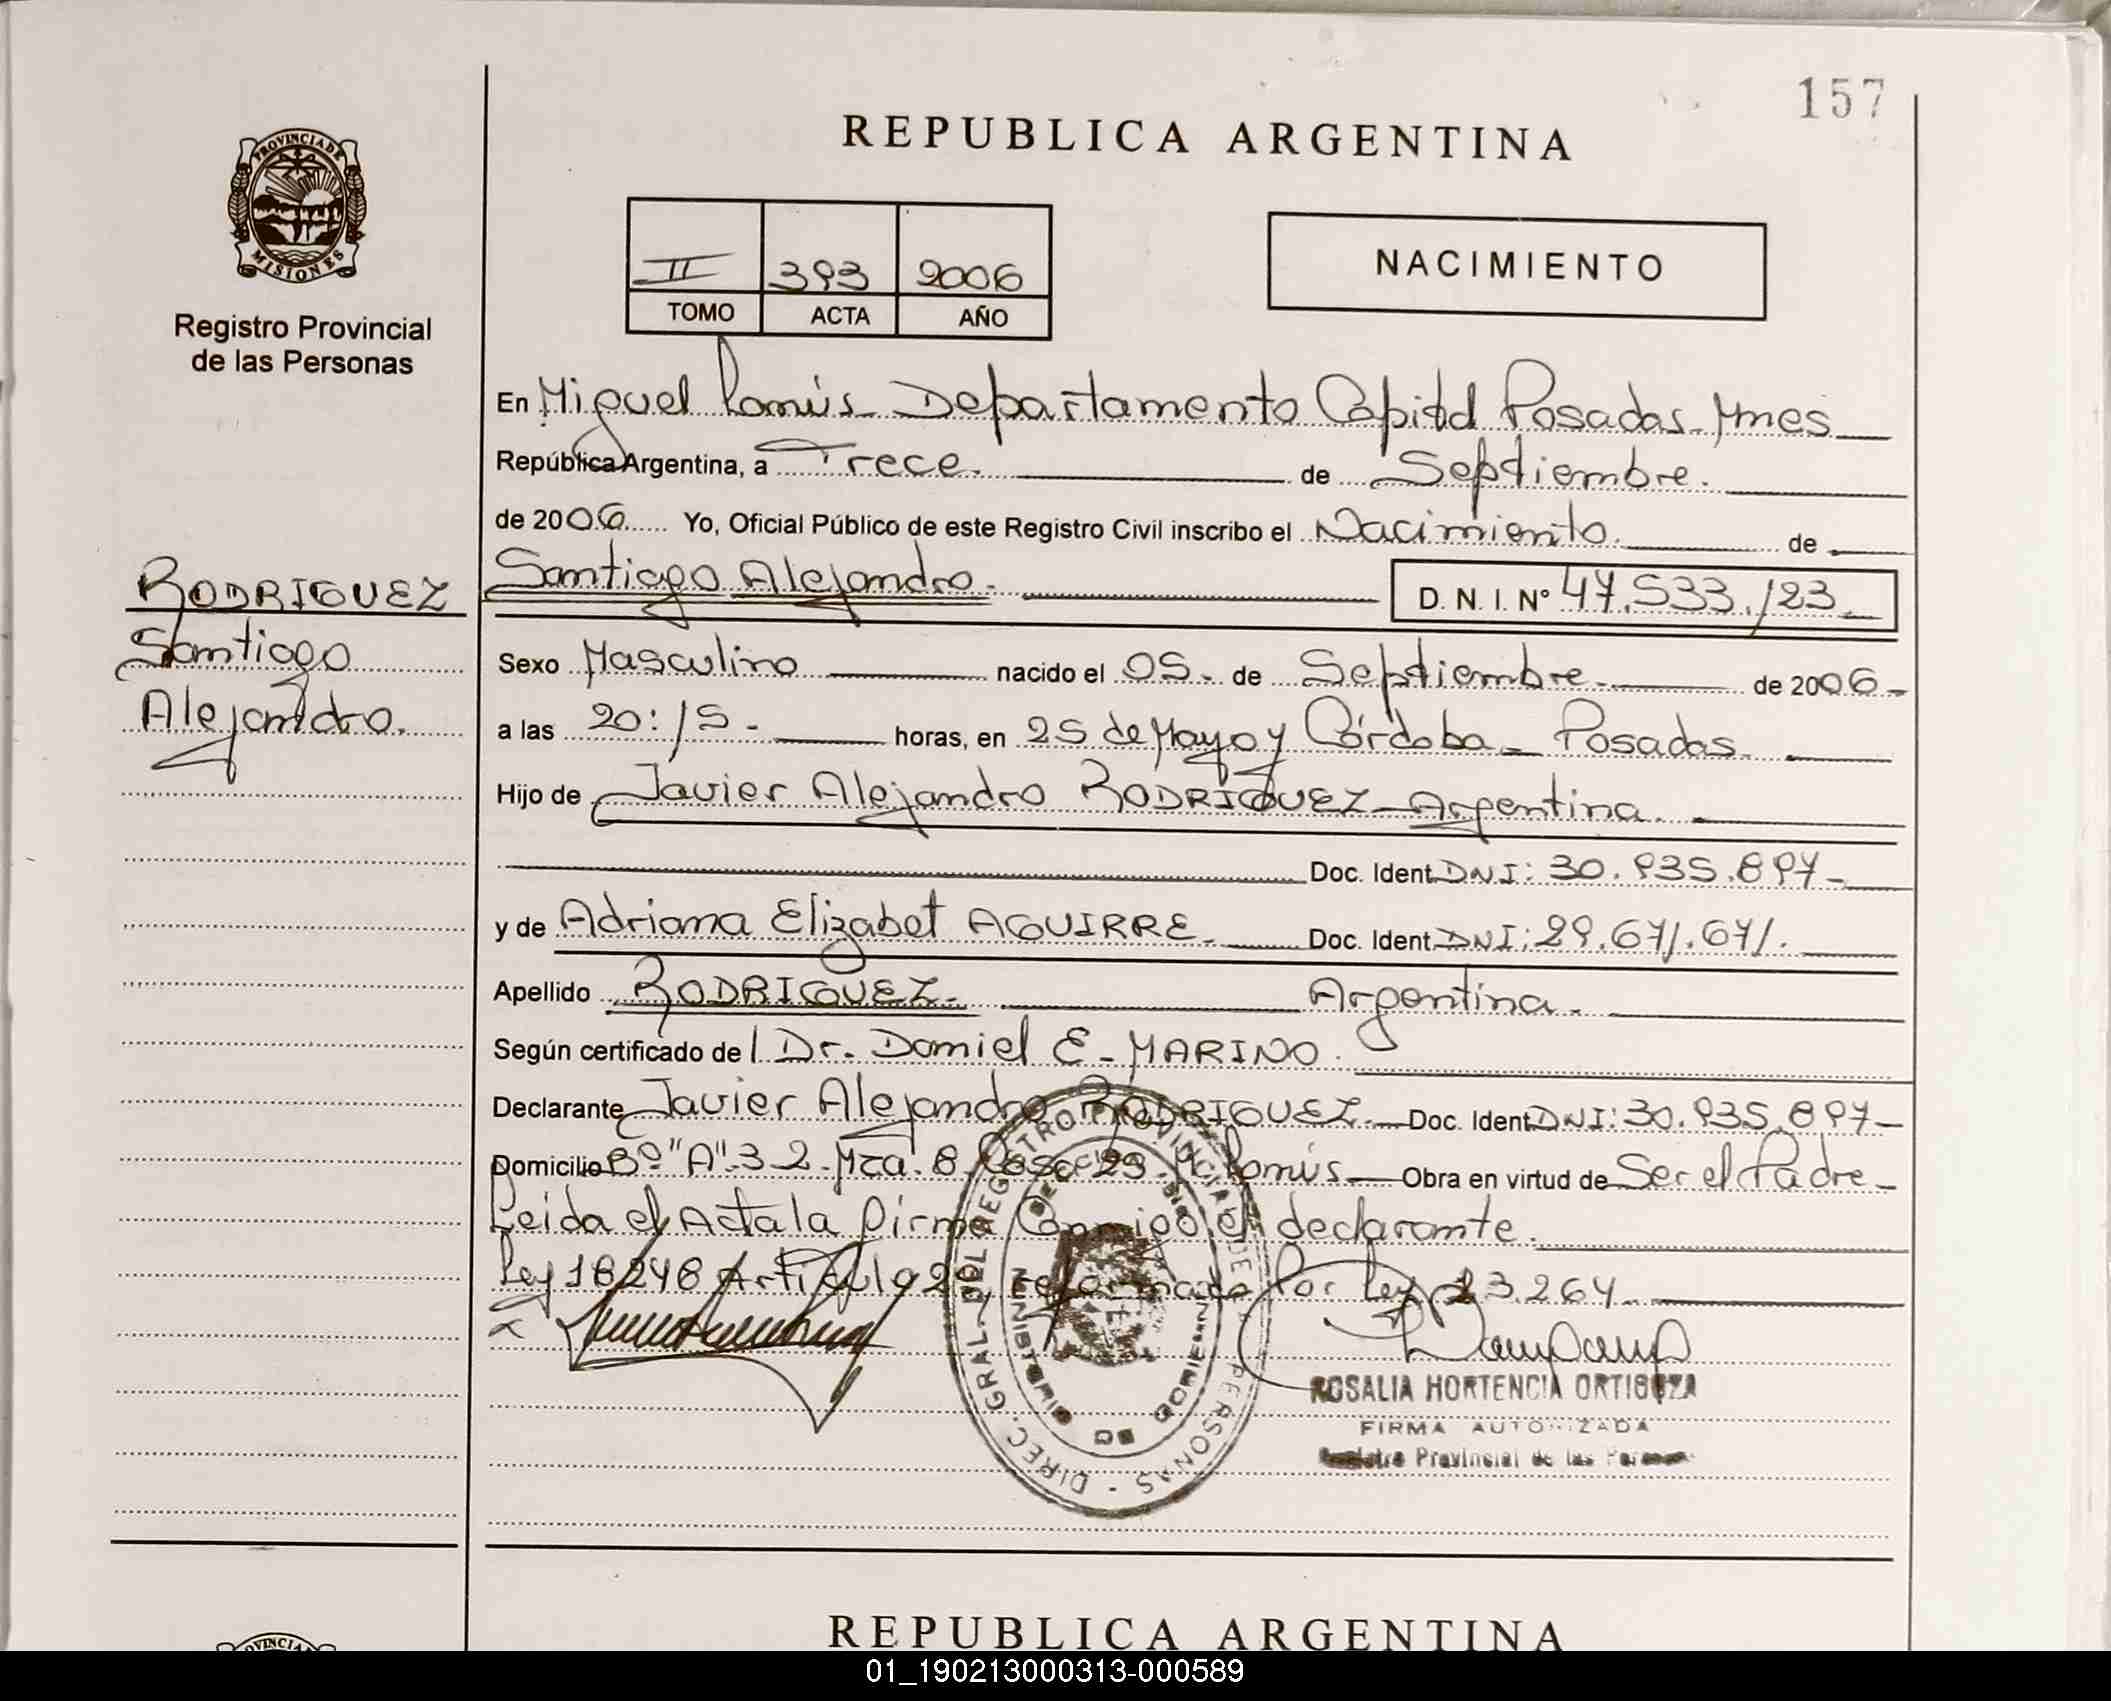 157
REPUBLICA ARGENTINA
PROVINCIA DE MISIONES
Registro Provincial
de las Personas
II 393 2006
TOMO ACTA AÑO
NACIMIENTO
En Miguel Lanús Departamento Capital Posadas Mnes
República Argentina, a Trece. de Septiembre.
de 2006 Yo, Oficial Público de este Registro Civil inscribo el Nacimiento. de
RODRIGUEZ
Santiago
Alejandro.
Santiago Alejandro. D. N. I. Nº 47.533.123
Sexo Masculino nacido el 05. de Septiembre. de 2006
a las 20:15 horas, en 25 de Mayo y Córdoba Posadas.
Hijo de Javier Alejandro RODRIGUEZ Argentina.
Doc. Ident DNI: 30.935.897
y de Adriana Elizabet AGUIRRE. Doc. Ident DNI: 29.671.671.
Apellido RODRIGUEZ Argentina.
Según certificado del Dr. Daniel E. MARINO.
Declarante Javier Alejandro RODRIGUEZ. Doc. Ident DNI: 30.935.897
Domicilio Bº "A".3 2. Mza. 8 Casa 29 M. Lanús Obra en virtud de Ser el Padre
Leida el Acta la firma Conmigo el declarante.
Ley 18248 Artículo 2º, reformado Por Ley 23.264
DIREC. GRAL. DEL REGISTRO PROVINCIAL DE LAS PERSONAS
ROSALIA HORTENCIA ORTIGOZA
FIRMA AUTORIZADA
Registro Provincial de las Personas
REPUBLICA ARGENTINA
01_190213000313-000589